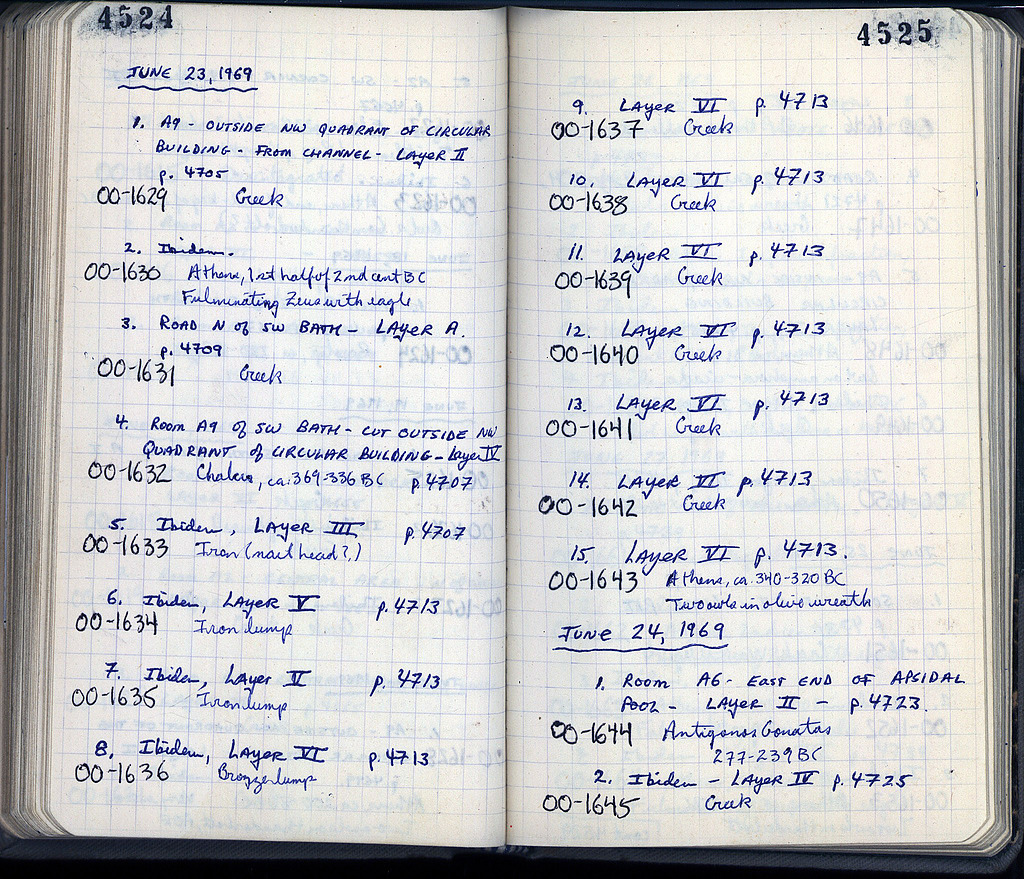 4524
JUNE 23, 1969
1. A9 - OUTSIDE NW QUADRANT OF CIRCULAR
BUILDING - FROM CHANNEL - LAYER II
p. 4705
OO-1629 Greek
2. Ibidem.
OO-1630 Athens, 1st half of 2nd cent BC
Fulminating Zeus with eagle
3. ROAD N OF SW BATH - LAYER A.
p. 4709
OO-1631 Greek
4. Room A9 of SW BATH - CUT OUTSIDE NW
QUADRANT of CIRCULAR BUILDING - Layer IV
OO-1632 Chalcis, ca. 369-336 BC p. 4707
5. Ibidem, LAYER III p. 4707
OO-1633 Iron (nail head?)
6. Ibidem, LAYER V p. 4713
OO-1634 Iron lump
7. Ibidem, Layer V p. 4713
OO-1635 Iron lump
8. Ibidem, LAYER VI p. 4713
OO-1636 Bronze lump
4525
9. LAYER VI p. 4713
OO-1637 Greek
10. LAYER VI p. 4713
OO-1638 Greek
11. LAYER VI p. 4713
OO-1639 Greek
12. LAYER VI p. 4713
OO-1640 Greek
13. LAYER VI p. 4713
OO-1641 Greek
14. LAYER VI p. 4713
OO-1642 Greek
15. LAYER VI p. 4713.
OO-1643 Athens, ca. 340-320 BC
Two owls in olive wreath
JUNE 24, 1969
1. ROOM A6 - EAST END OF APSIDAL
POOL - LAYER II - p. 4723.
OO-1644 Antigonos Gonatas
277-239 BC
2. Ibidem - LAYER IV p. 4725
OO-1645 Greek